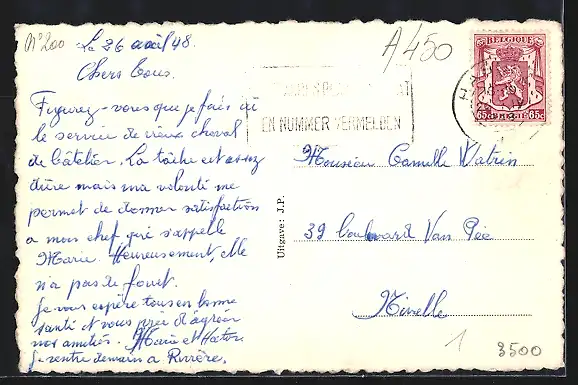 N° 200
Le 26 avril 48.
A450
Chers Tous.
Figurez-vous que je fais ici
le service de vieux cheval
de l'atelier. La tâche est assez
dure mais ma volonté me
permet de donner satisfaction
a mon chef qui s'appelle
Marie. Heureusement elle
n'a pas de fouet.
Je vous espère tous en bonne
santé et vous prie d'agréer
nos amitiés. Marie et
Je rentre demain a
BELGIQUE
65c BELGIE 65c
EN NUMMER VERMELDEN
Uitgave: J.P.
Monsieur Camille Watrin
39 boulevard Van Pée
Nivelle
1
3500